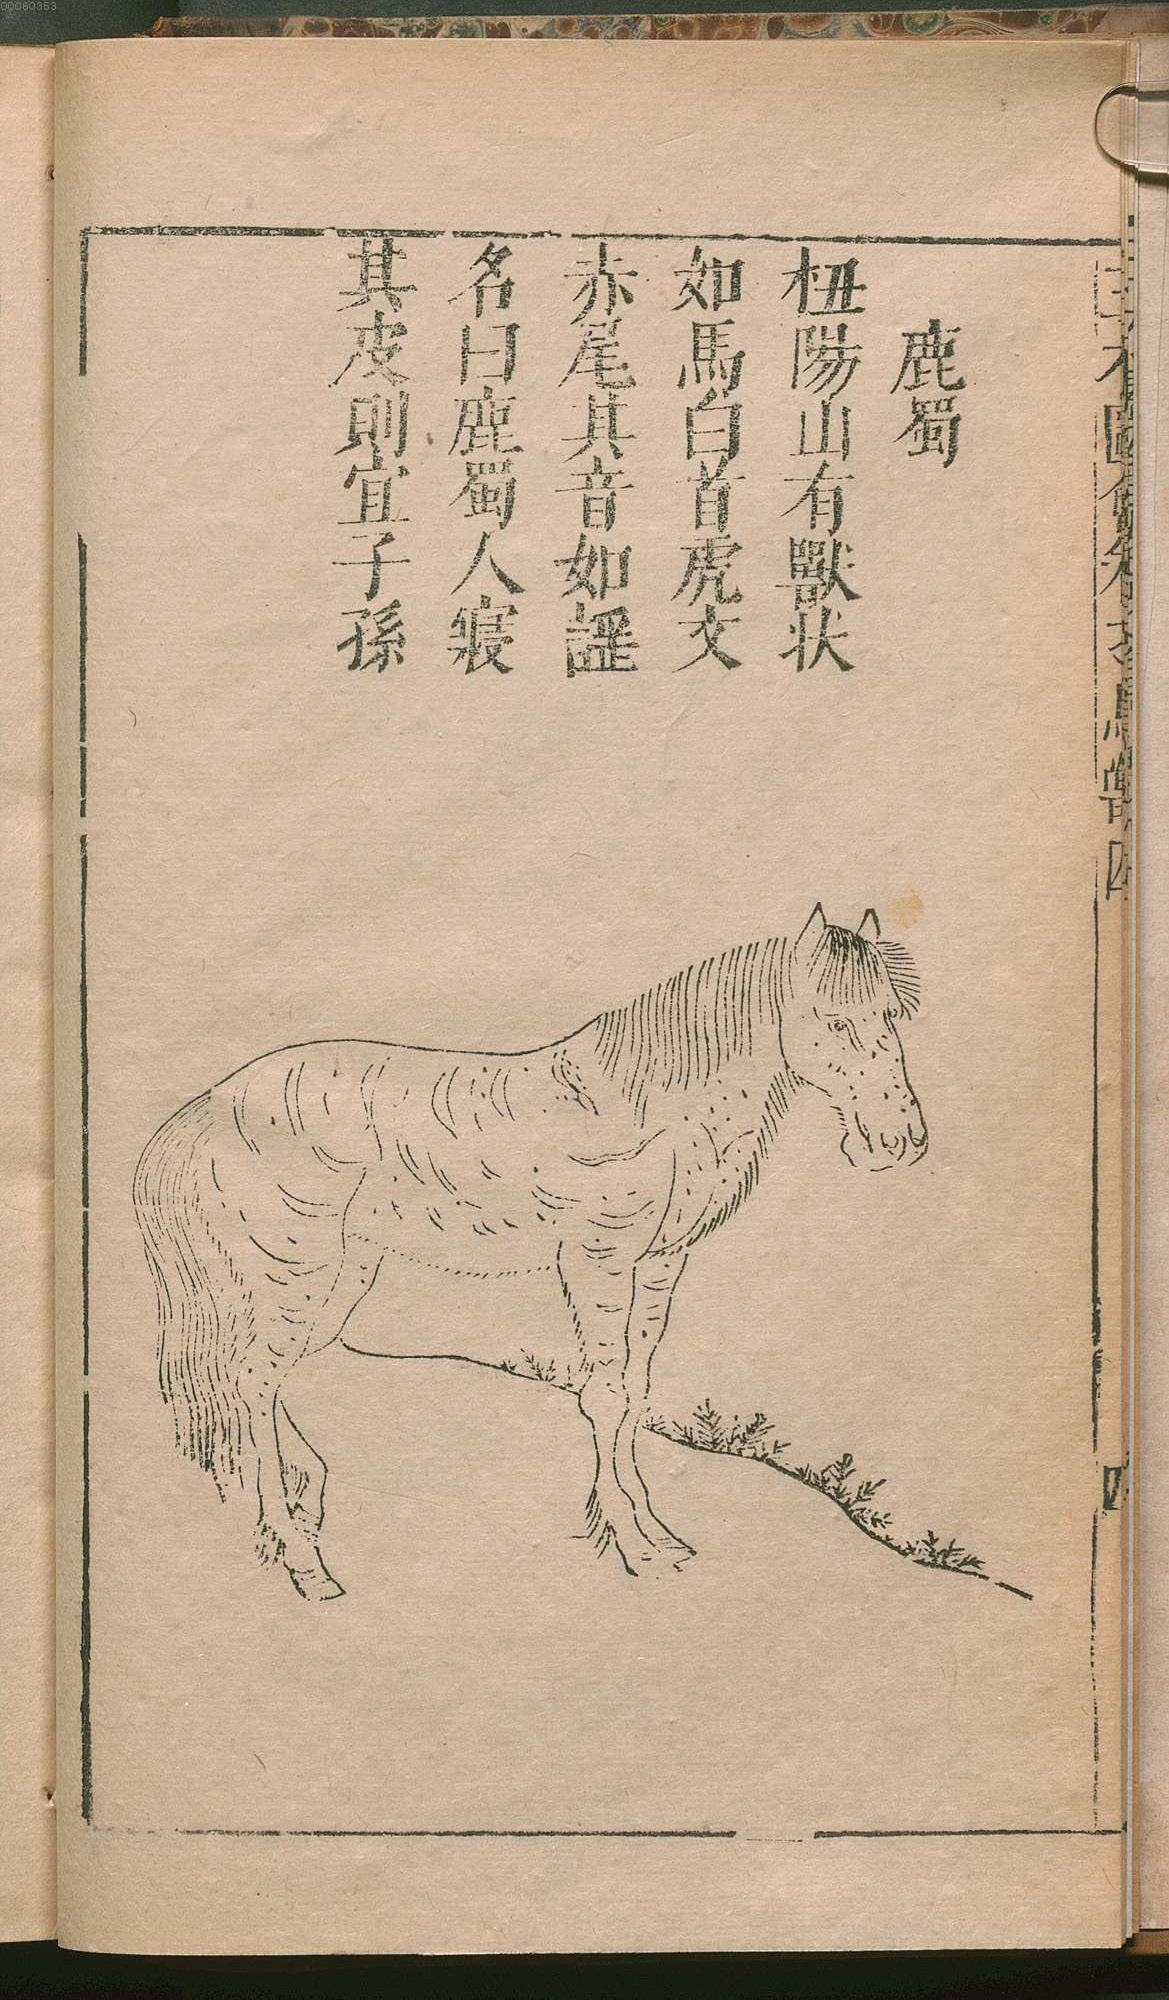 鹿蜀
杻陽山有獸狀
如馬白首虎文
赤尾其音如謡
名曰鹿蜀人寢
其皮則宜子孫
00060353